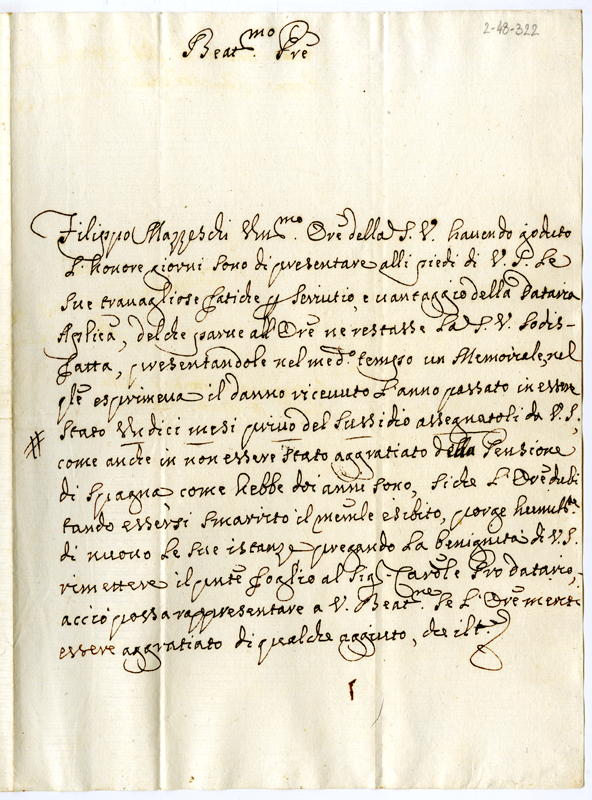 2-48-322
Beat.mo Pre
Filippo Mazzeschi Um.mo Ore della S. V. havendo goduto
l'honore giorni sono di presentare alli piedi di V. S. le
sue travagliose fatiche p servitio, e vantaggio della Dataria
Aplica, del che parve all'Ore ne restasse la S. V. sodis-
fatta, presentandole nel med.o tempo un Memoriale, nel
qle esprimeva il danno ricevuto l'anno passato in essere
# stato undici mesi privo del sussidio assegnatoli da V. S.,
come anche in non essere stato aggratiato della Pensione
di Spagna come hebbe doi anni sono, si che l'Ore dubi
tando essersi smarrito il memle esibito, porge humilte
di nuovo le sue istanze pregando la benignità di V. S.
rimettere il pnte foglio al Sigr Cardle Prodatario,
acciò possa rappresentare a V. Beat.ne se l'Ore meriti
essere aggratiato di qualche aggiuto, che il t.